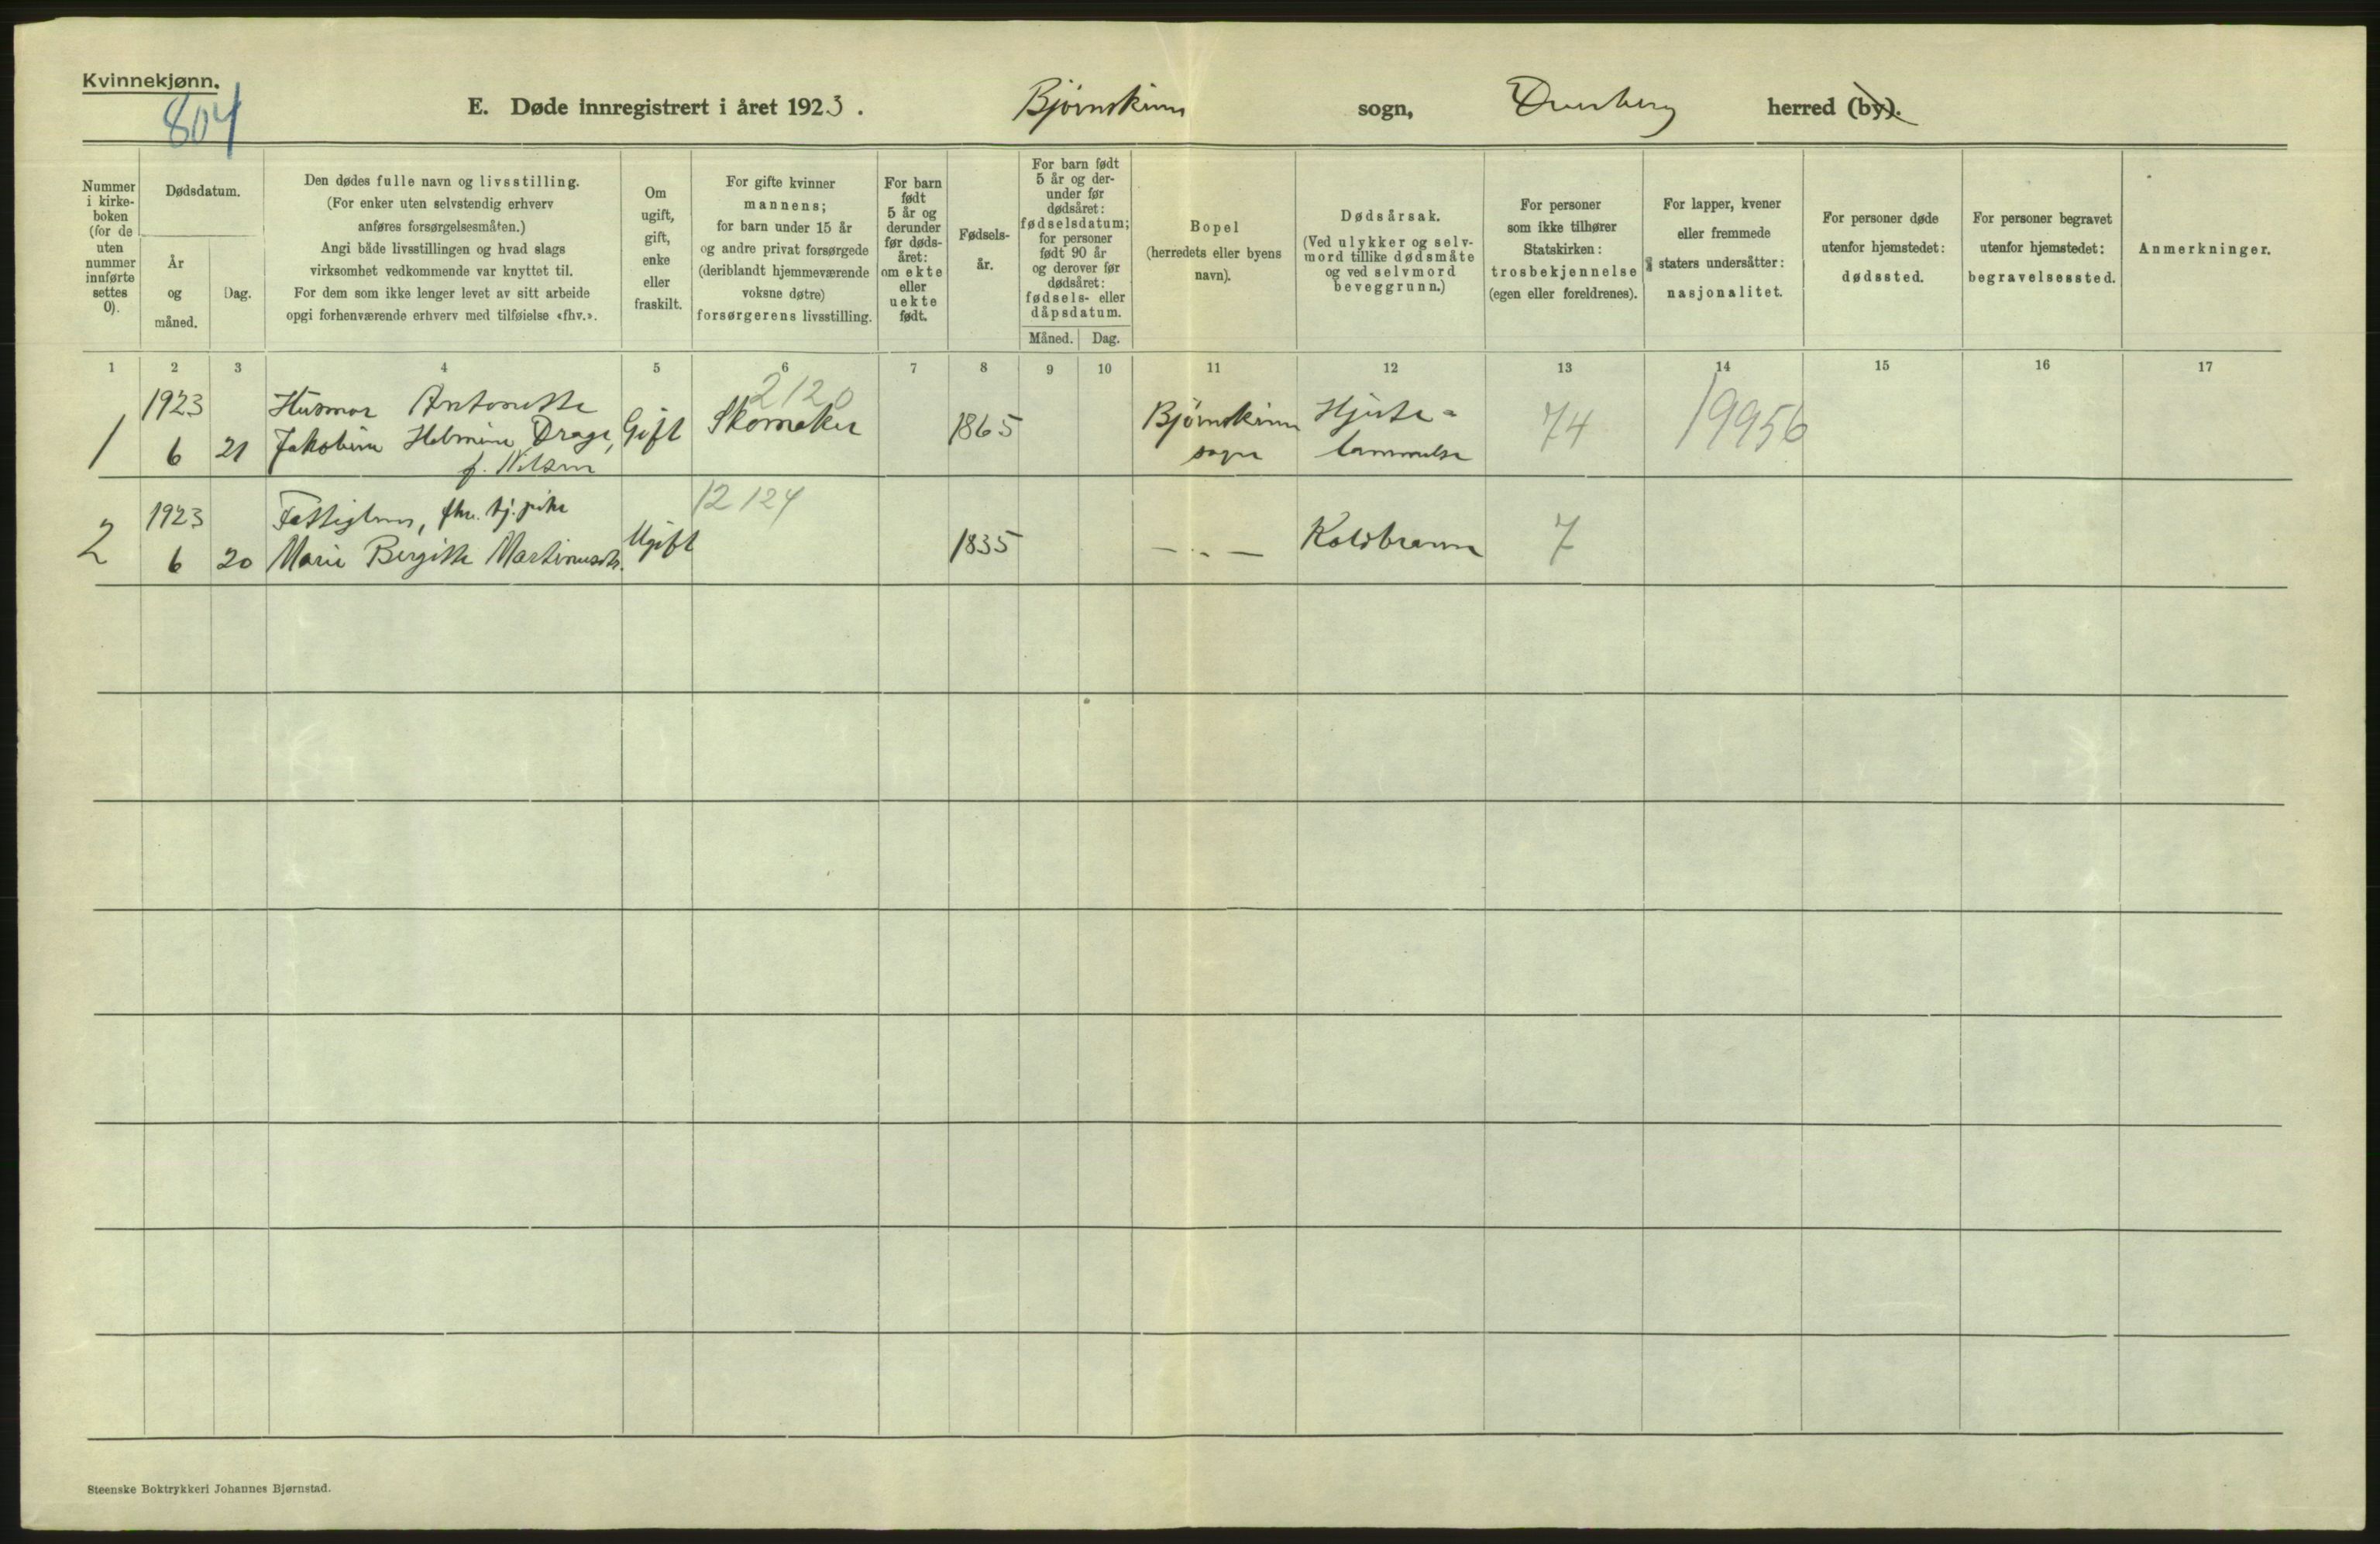 Kvinnekjønn.
804
E. Døde innregistrert i året 1923. Bjørnskinn sogn, Dverberg herred (by).
Nummer i kirkeboken (for de uten nummer innførte settes 0).
Dødsdatum.
År og måned.
Dag.
Den dødes fulle navn og livsstilling.
(For enker uten selvstendig erhverv
anføres forsørgelsesmåten.)
Angi både livsstillingen og hvad slags
virksomhet vedkommende var knyttet til.
For dem som ikke lenger levet av sitt arbeide
opgi forhenværende erhverv med tilføielse «fhv.».
Om
ugift,
gift,
enke
eller
fraskilt.
For gifte kvinner
mannens;
for barn under 15 år
og andre privat forsørgede
(deriblandt hjemmeværende
voksne døtre)
forsørgerens livsstilling.
For barn
født
5 år og
derunder
før døds-
året:
om ekte
eller
uekte
født.
Fødsels-
år.
For barn født
5 år og der-
under før
dødsåret:
fødselsdatum;
for personer
født 90 år
og derover før
dødsåret:
fødsels- eller
dåpsdatum.
Måned. Dag.
Bopel
(herredets eller byens
navn).
Dødsårsak.
(Ved ulykker og selv-
mord tillike dødsmåte
og ved selvmord
beveggrunn.)
For personer
som ikke tilhører
Statskirken:
trosbekjennelse
(egen eller foreldrenes).
For lapper, kvener
eller fremmede
staters undersåtter:
nasjonalitet.
For personer døde
utenfor hjemstedet:
dødssted.
For personer begravet
utenfor hjemstedet:
begravelsessted.
Anmerkninger.
1 2 3 4 5 6 7 8 9 10 11 12 13 14 15 16 17
1 1923 6 21 Husmor Antonette
Jakobine Helmine Drage,
f. Nilsen
Gift 2120 Skomaker 1865 Bjørnskinn sogn Hjerte-
lammelse 74 19956
2 1923 6 20 Fattiglem, fhv. tj.pike
Marie Bergitte Martinusdtr.
Ugift 12124 1835 — „ — Koldbrann 7
Steenske Boktrykkeri Johannes Bjørnstad.